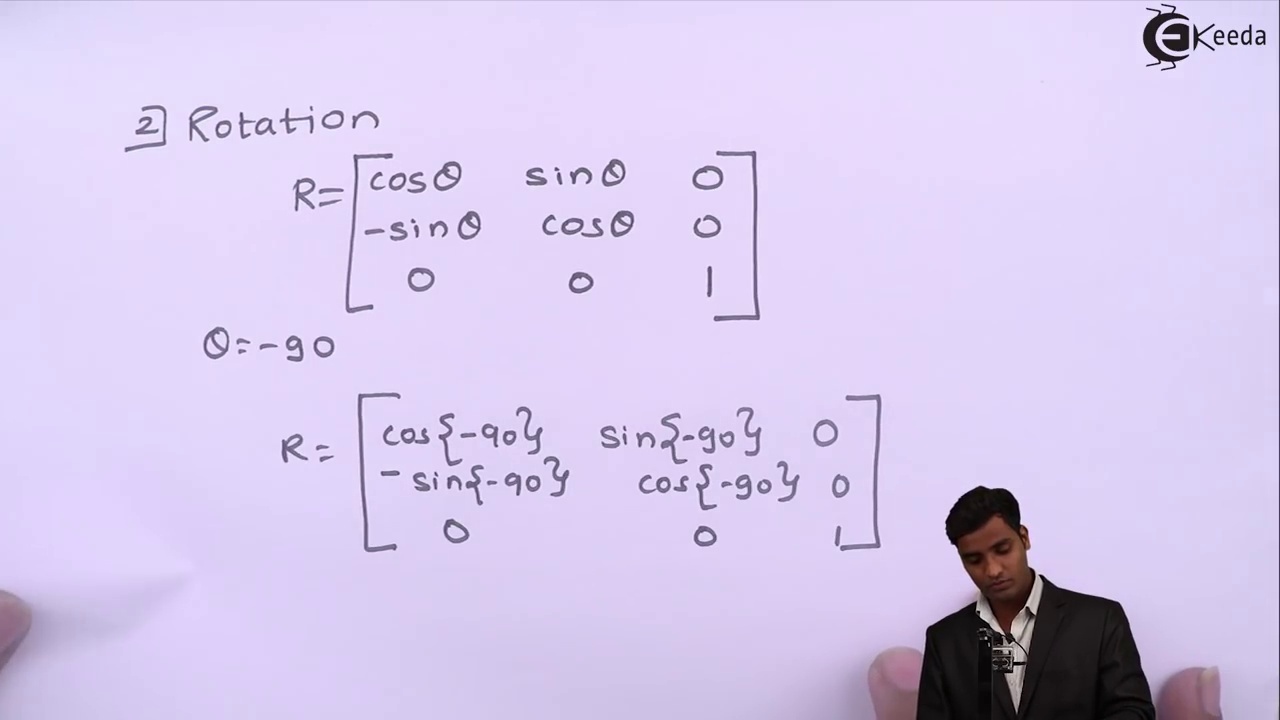 EKeeda
2] Rotation
R= [ cosθ sinθ 0
-sinθ cosθ 0
0 0 1 ]
θ=-90
R= [ cos{-90} sin{-90} 0
-sin{-90} cos{-90} 0
0 0 1 ]